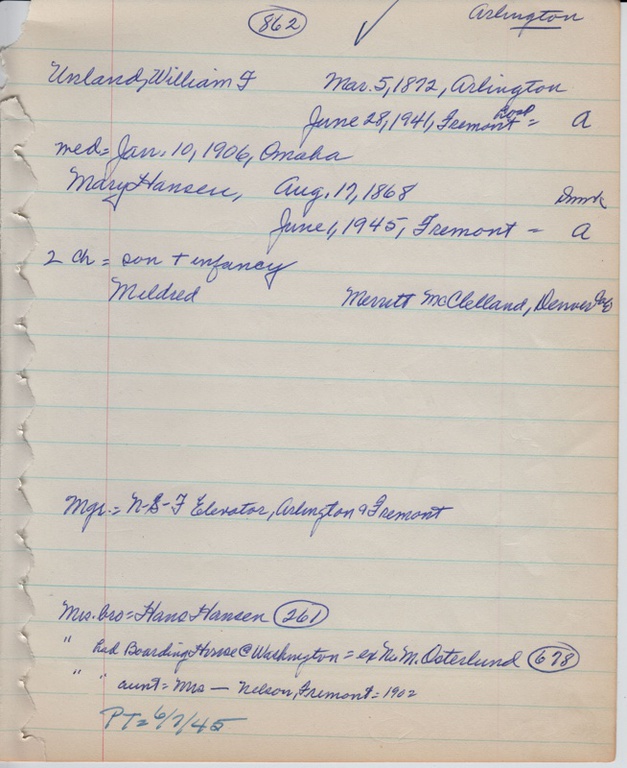 862
Arlington
Unland, William F Mar. 5, 1872, Arlington
June 28, 1941, Fremont Hosp = A
med = Jan. 10, 1906, Omaha
Mary Hansen, Aug. 17, 1868 Dnmk
June 1, 1945, Fremont - A
2 Ch = son + infancy
Mildred Merritt McClelland, Denver
Mgr. = N-S-F Elevator, Arlington & Fremont
Mrs. bro = Hans Hansen 261
" had Boarding House @ Washington = ex M. Osterlund 678
" " aunt = Mrs — Nelson, Fremont = 1902
PT = 6/7/45